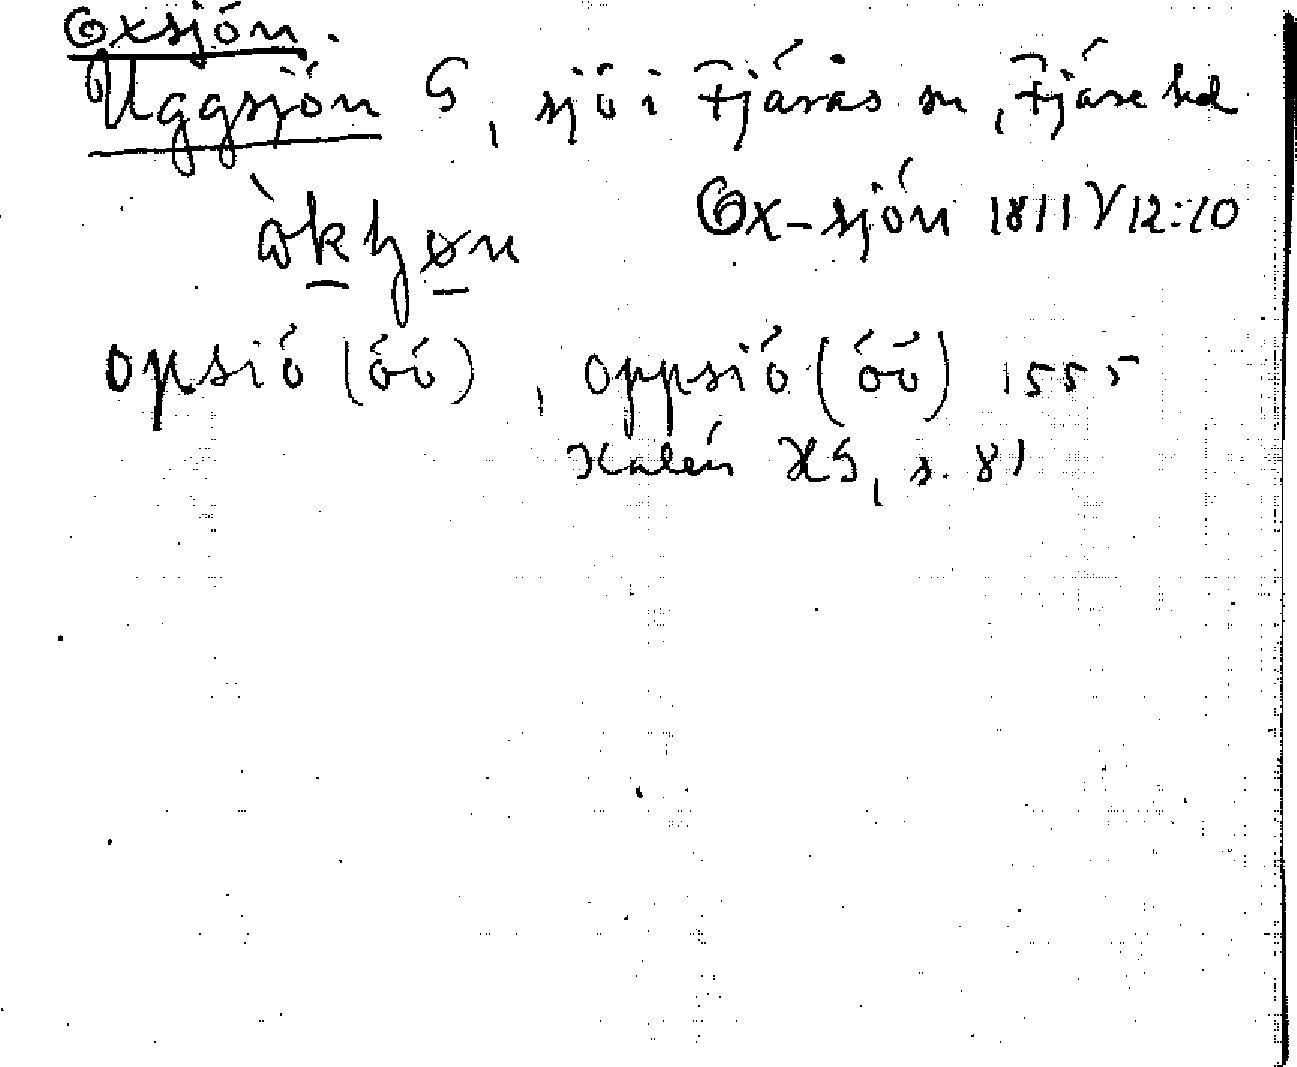 Oxsjön.
Uggsjön G, sjö i Fjärås sn, Fjäre hd
Ox-sjön 1811 V12:10
opsiö (öö), oppsiö (öö) 1555
Kalén HG, s. 81